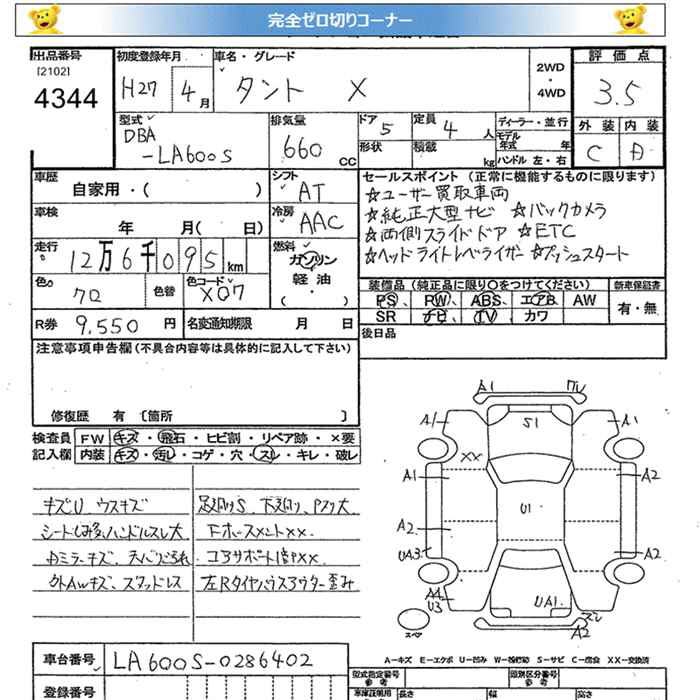 完全ゼロ切りコーナー
出品番号
[2102]
4344
初度登録年月
H27 4月
車名・グレード
タント X
2WD
・
4WD
評価点
3.5
外装 内装
C A
型式
DBA
-LA600S
排気量
660 cc
ドア 5
形状
定員 4 人
積載 kg
ディーラー・並行
モデル年式 年
ハンドル 左・右
車歴
自家用・( )
シフト
AT
車検
年 月( 日)
冷房
AAC
走行
12万6千095 km
燃料
ガソリン
軽油
・
色
クロ
色替
色コード
X07
R券 9,550 円
名変通知期限 月 日
セールスポイント (正常に機能するものに限ります)
☆ユーザー買取車両
☆純正大型ナビ ☆バックカメラ
☆両側スライドドア ☆ETC
☆ヘッドライトレベライザー ☆プッシュスタート
装備品 (純正品に限り〇をつけてください)
PS、 PW、 ABS、 エアB、 AW
SR ナビ、 TV、 カワ
新車保証書
有・無
後日品
注意事項申告欄(不具合内容等は具体的に記入して下さい)
修復歴 有 〔箇所 〕
検査員
記入欄
FW キズ・飛石・ヒビ割・リペア跡・×要
内装 キズ・汚レ・コゲ・穴・スレ・キレ・破レ
キズU ウスキズ
シートしみ多、ハンドルスレ大
Aミラーキズ、天バリ汚れ
クトAWキズ、スタッドレス
足廻りS 下廻り、Pスリ大
Fホースメント××
コアサポート曲××
左Rタイヤハウスアウター歪み
A1
A1
S1
A1
××
A1
A2
A2
U1
UA3
A2
A4
U3
UA1
A2
スペア
A-キズ E-エクボ U-凹み W-補修跡 S-サビ C-腐食 XX-交換済
車台番号 LA600S-0286402
登録番号
型式指定番号
参考
類別区分番号
参考
車庫証明用
長さ
幅
高さ